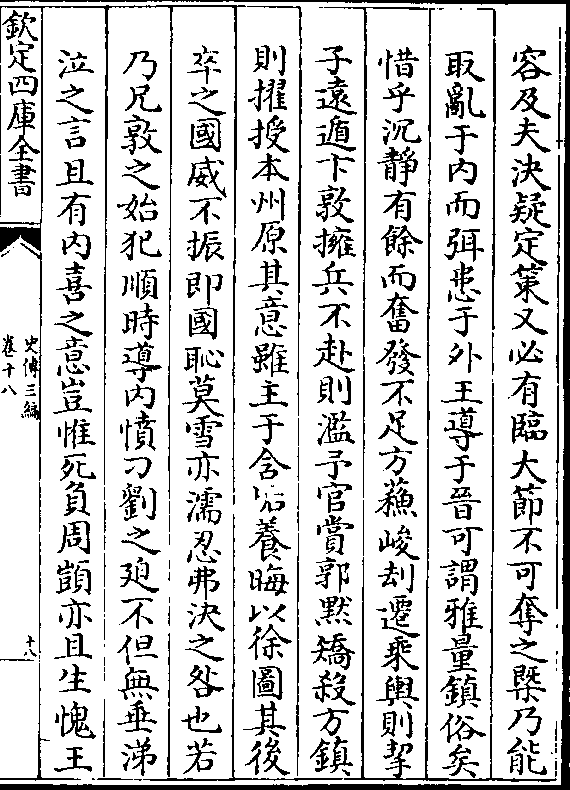 容及夫決疑定策又必有臨大節不可奪之槩乃能
取亂于内而弭患于外王導于晉可謂雅量鎮俗矣
惜乎沉靜有餘而奮發不足方蘓峻刦遷乗輿則挈
子遠遁卞敦擁兵不赴則濫予官賞郭黙矯殺方鎮
則擢授本州原其意雖主于含垢養晦以徐圖其後
卒之國威不振即國恥莫雪亦濡忍弗決之咎也若
乃兄敦之始犯順時導内憤刁劉之廹不但無垂涕
泣之言且有内喜之意豈惟死負周顗亦且生愧王
欽定四庫全書
史傳三編
卷十八
十八